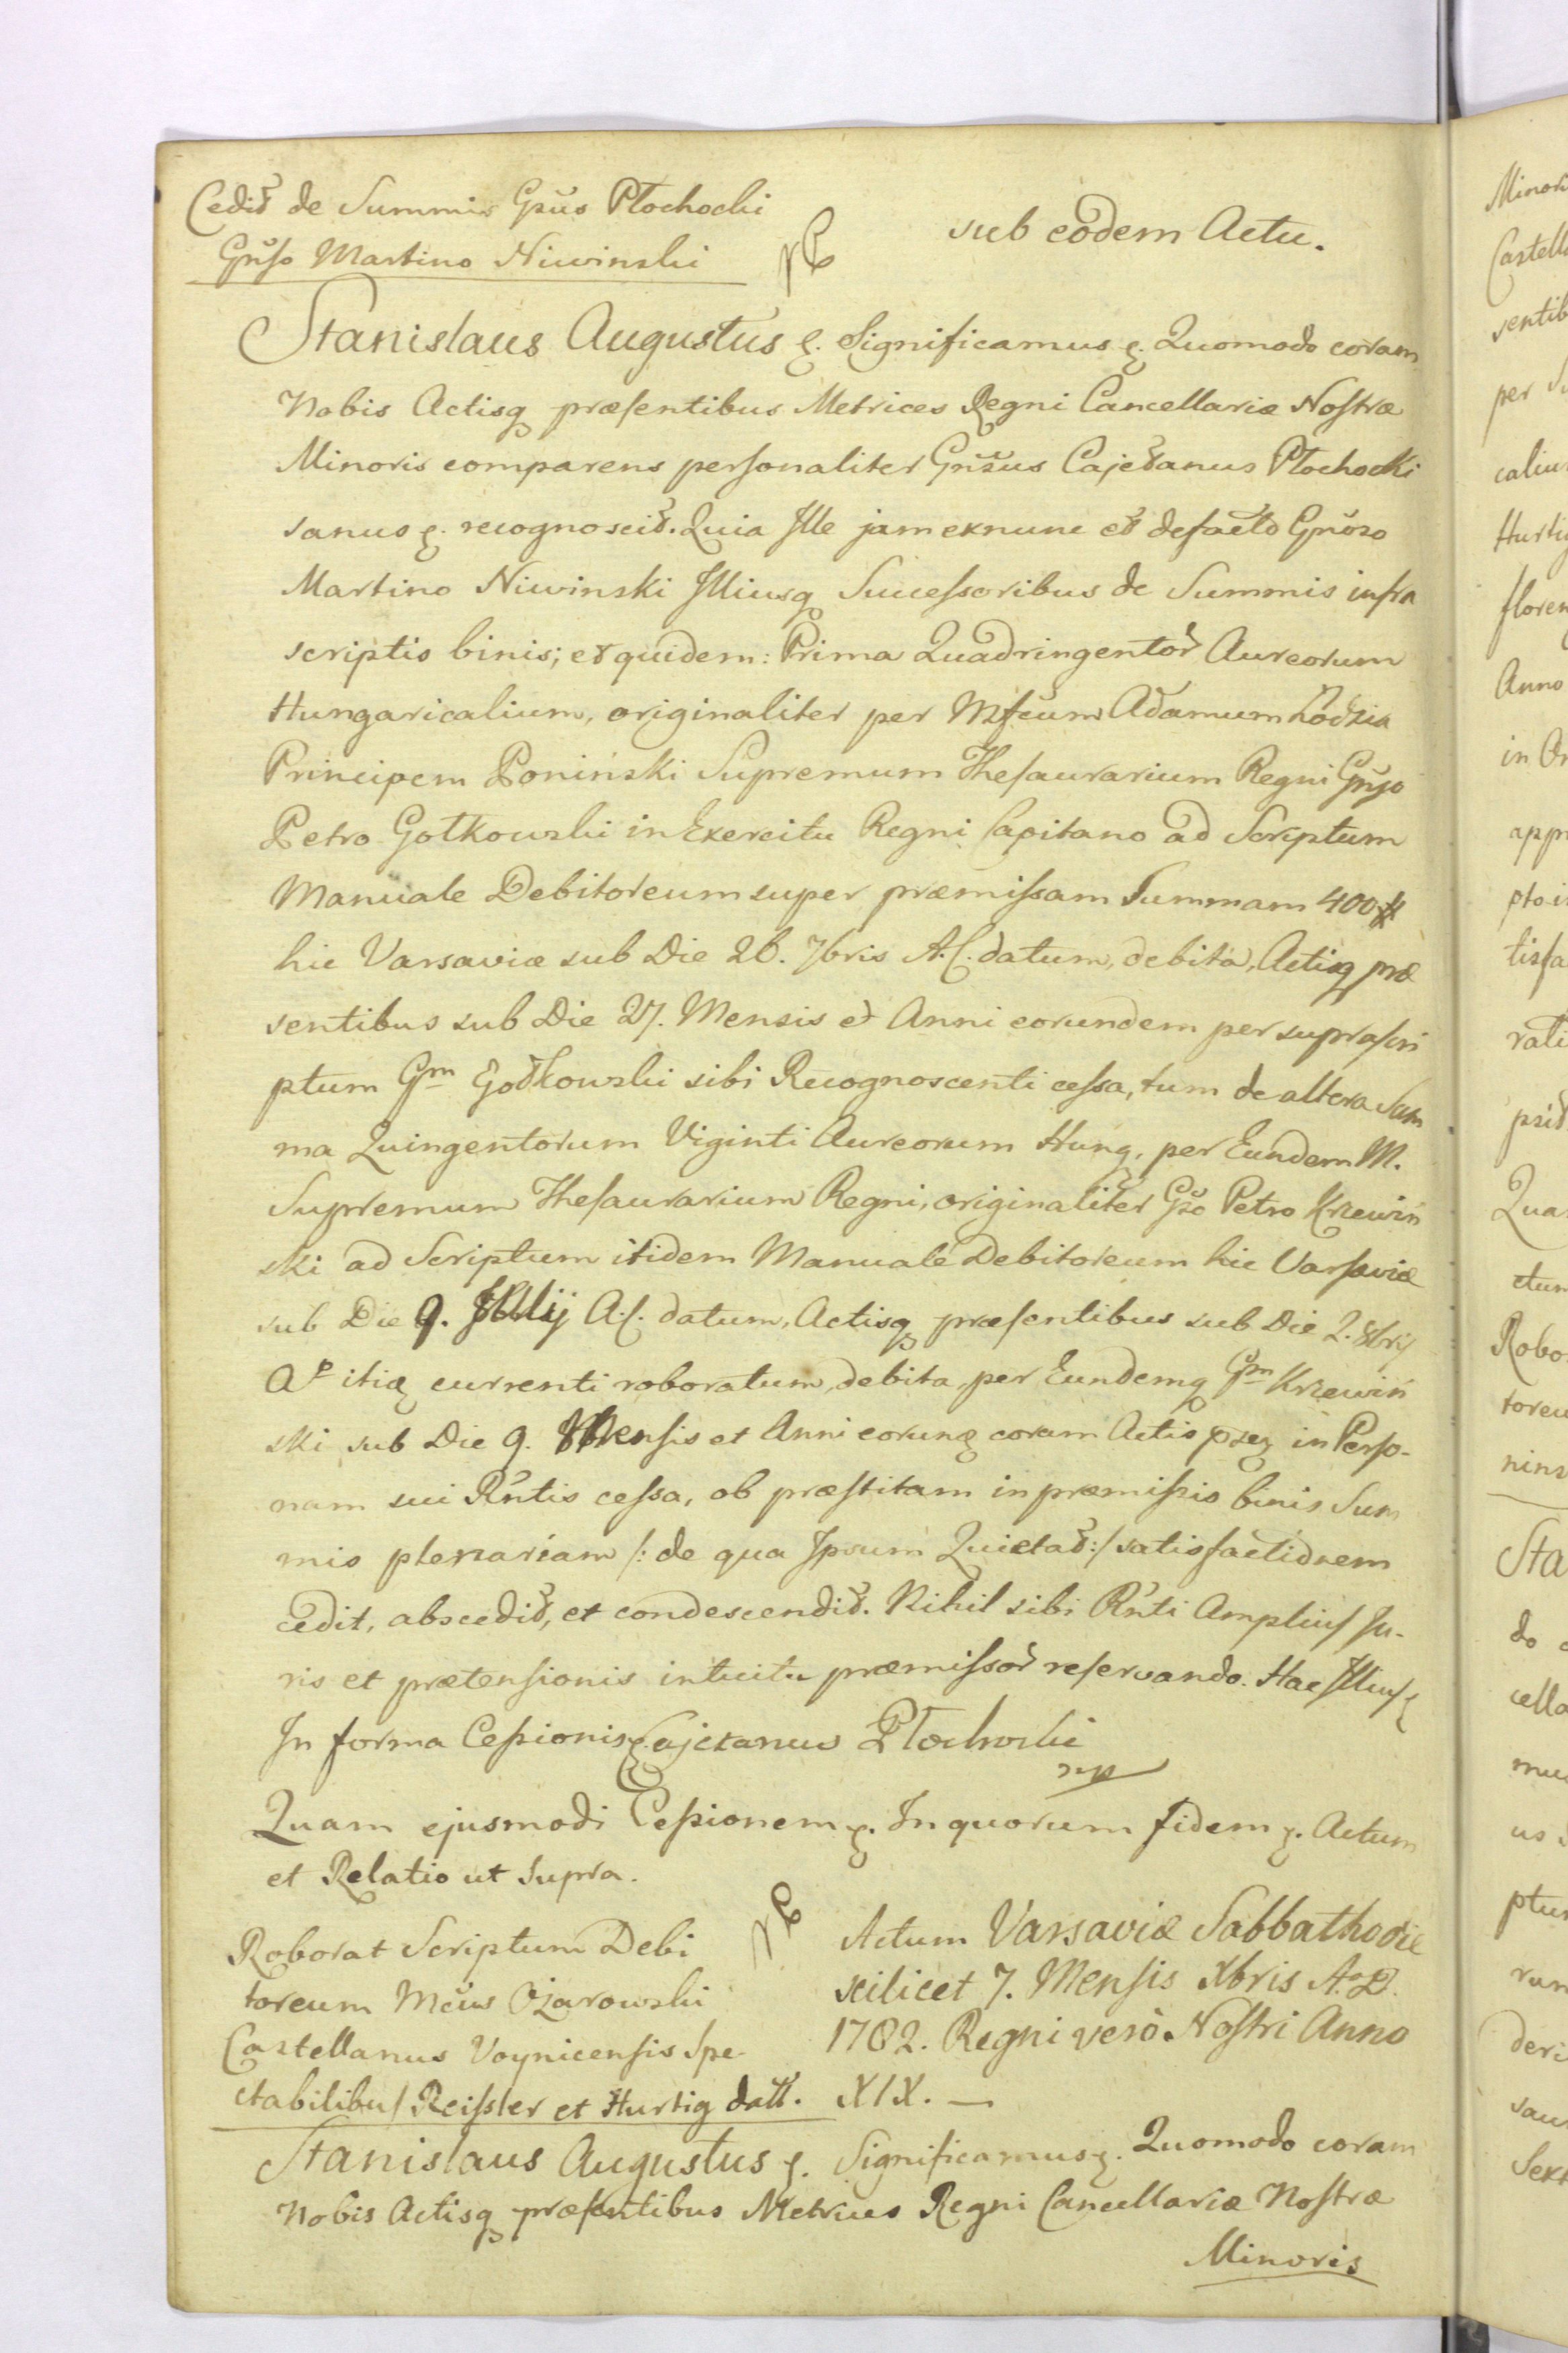 Cedit de Summis Gnsus Płochocki
Gnso Martino Niwinski
sub eodem Actu.
Stanislaus Augustus &. Significamus &. Quomodo coram
Nobis Actisq præsentibus Metrices Regni Cancellariæ Nostræ
Minoris comparens personaliter Gnsus Cajetanus Płochocki
sanus &. recognoscit. Quia Ille jam exnunc et defacto Gnoso
Martino Niwinski Illiusq Successoribus de Summis infra
scriptis binis; et quidem: Prima Quadringentor Aureorum
Hungaricalium, originaliter per Mfcum Adamum Łodzia
Principem Poniński Supremum Thesaurarium Regni Gnso
Petro Gotkowski in Exercitu Regni Capitano ad Scriptum
Manuale Debitoreum super præmissam Summam 400 #
hic Varsaviæ sub Die 26. 7bris A.C. datum, debita, Actisq præ
sentibus sub Die 27. Mensis et Anni eorundem per suprascri
ptum Gm Gotkowski sibi Recognoscenti cessa, tum de altera Sum
ma Quingentorum Viginti Aureorum Hung, per Eundem M.
Supremum Thesaurarium Regni, originaliter Gso Petro Krzewiń
ski ad Scriptum itidem Manuale Debitoreum hic Varsaviæ
sub Die 9. Julij A.C. datum, Actisq præsentibus sub Die 2. 8bris
Ao itiq currenti roboratum, debita, per Eundemq Gm Krzewiń
ski sub Die 9. Mensis et Anni eorunq coram Actis psq in Perso-
nam sui Rntis cessa, ob præstitam in præmissis binis Sum
mis plenariam /: de qua Ipsum Quietat :/ satisfactionem
cedit, abscedit, et condescendit. Nihil sibi Rnti Amplius Ju-
ris et prætensionis intuitu præmissor reservando. Hac Illius &
In forma Cessionis &. Cajetanus Płochocki
mp
Quam ejusmodi Cessionem &. In quorum fidem &. Actum
et Relatio ut supra.
Roborat Scriptum Debi
toreum Mcus Ożarowski
Castellanus Voynicensis Spe
ctabilibus Reissler et Hurtig datt.
Actum Varsaviæ Sabbatho die
scilicet 7. Mensis Xbris A.D.
1782. Regni verò Nostri Anno
XIX. —
Stanislaus Augustus &. Significamus &. Quomodo coram
Nobis Actisq præsentibus Metrices Regni Cancellariæ Nostræ
Minoris